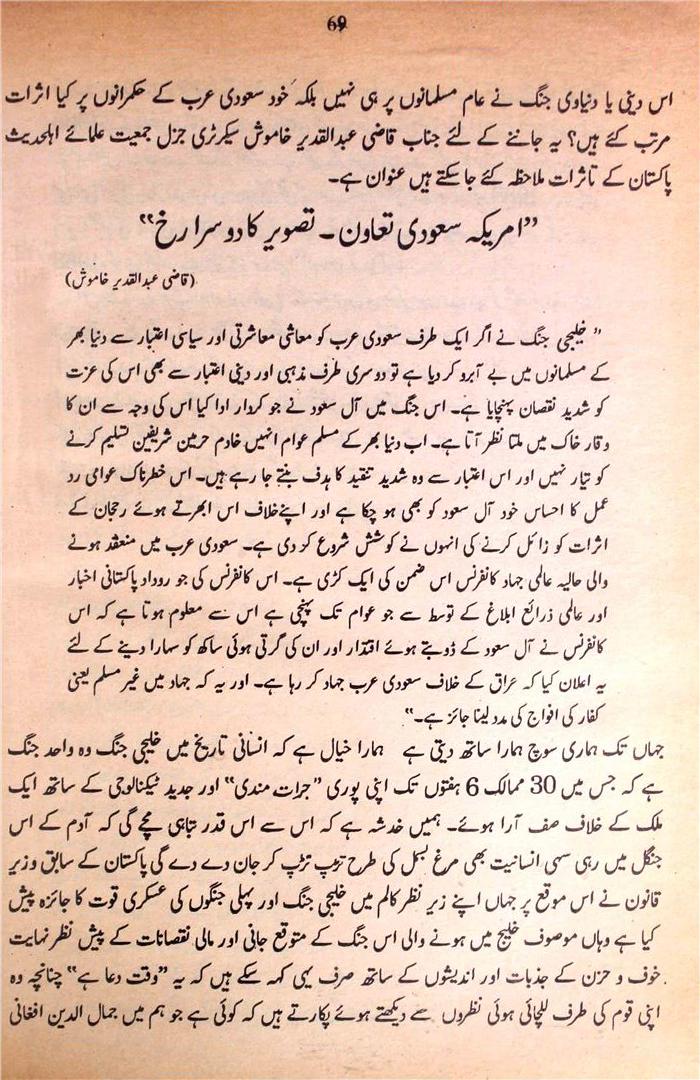 69
اس دینی یا دنیاوی جنگ نے عام مسلمانوں پر ہی نہیں بلکہ خود سعودی عرب کے حکمرانوں پر کیا اثرات
مرتب کئے ہیں؟ یہ جاننے کے لئے جناب قاضی عبدالقدیر خاموش سیکرٹری جنرل جمعیت علمائے اہلحدیث
پاکستان کے تاثرات ملاحظہ کئے جا سکتے ہیں عنوان ہے۔
”امریکہ سعودی تعاون۔ تصویر کا دوسرا رخ“
(قاضی عبدالقدیر خاموش)
” خلیجی جنگ نے اگر ایک طرف سعودی عرب کو معاشی معاشرتی اور سیاسی اعتبار سے دنیا بھر
کے مسلمانوں میں بے آبرو کر دیا ہے تو دوسری طرف مذہبی اور دینی اعتبار سے بھی اس کی عزت
کو شدید نقصان پہنچایا ہے۔ اس جنگ میں آل سعود نے جو کردار ادا کیا اس کی وجہ سے ان کا
وقار خاک میں ملتا نظر آتا ہے۔ اب دنیا بھر کے مسلم عوام انہیں خادم حرمین شریفین تسلیم کرنے
کو تیار نہیں اور اس اعتبار سے وہ شدید تنقید کا ہدف بنتے جا رہے ہیں۔ اس خطرناک عوامی رد
عمل کا احساس خود آل سعود کو بھی ہو چکا ہے اور اپنے خلاف اس ابھرتے ہوئے رجحان کے
اثرات کو زائل کرنے کی انہوں نے کوشش شروع کر دی ہے۔ سعودی عرب میں منعقد ہونے
والی حالیہ عالمی جہاد کانفرنس اس ضمن کی ایک کڑی ہے۔ اس کانفرنس کی جو روداد پاکستانی اخبار
اور عالمی ذرائع ابلاغ کے توسط سے جو عوام تک پہنچی ہے اس سے معلوم ہوتا ہے کہ اس
کانفرنس نے آل سعود کے ڈوبتے ہوئے اقتدار اور ان کی گرتی ہوئی ساکھ کو سہارا دینے کے لئے
یہ اعلان کیا کہ عراق کے خلاف سعودی عرب جہاد کر رہا ہے۔ اور یہ کہ جہاد میں غیر مسلم یعنی
کفار کی افواج کی مدد لینا جائز ہے۔“
جہاں تک ہماری سوچ ہمارا ساتھ دیتی ہے ہمارا خیال ہے کہ انسانی تاریخ میں خلیجی جنگ وہ واحد جنگ
ہے کہ جس میں 30 ممالک 6 ہفتوں تک اپنی پوری ”جرات مندی“ اور جدید ٹیکنالوجی کے ساتھ ایک
ملک کے خلاف صف آرا ہوئے۔ ہمیں خدشہ ہے کہ اس سے اس قدر تباہی مچے گی کہ آدم کے اس
جنگل میں رہی سہی انسانیت بھی مرغ بسمل کی طرح تڑپ تڑپ کر جان دے دے گی پاکستان کے سابق وزیر
قانون نے اس موقع پر جہاں اپنے زیر نظر کالم میں خلیجی جنگ اور پہلی جنگوں کی عسکری قوت کا جائزہ پیش
کیا ہے وہاں موصوف خلیج میں ہونے والی اس جنگ کے متوقع جانی اور مالی نقصانات کے پیش نظر نہایت
خوف و حزن کے جذبات اور اندیشوں کے ساتھ صرف یہی کہہ سکے ہیں کہ یہ ”وقت دعا ہے“ چنانچہ وہ
اپنی قوم کی طرف للچائی ہوئی نظروں سے دیکھتے ہوئے پکارتے ہیں کہ کوئی ہے جو ہم میں جمال الدین افغانی